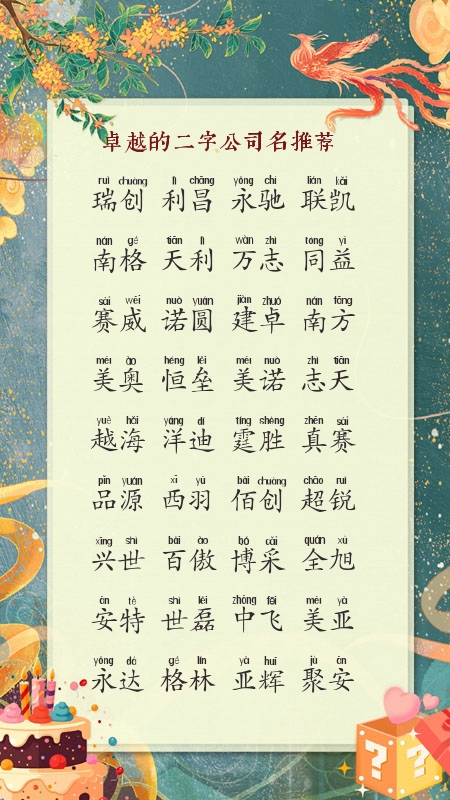 卓越的二字公司名推荐
ruì chuàng lì chāng yóng chí lián kǎi
瑞创 利昌 永驰 联凯
nán gé tiān lì wàn zhì tóng yì
南格 天利 万志 同益
sài wēi nuò yuán jiàn zhuó nán fāng
赛威 诺圆 建卓 南方
měi ào héng lěi měi nuò zhì tiān
美奥 恒垒 美诺 志天
yuè hǎi yáng dí tíng shèng zhēn sài
越海 洋迪 霆胜 真赛
pǐn yuán xī yǔ bǎi chuàng chāo ruì
品源 西羽 佰创 超锐
xīng shì bǎi ào bó cǎi quán xù
兴世 百傲 博采 全旭
ān tè shì lěi zhōng fēi měi yà
安特 世磊 中飞 美亚
yóng dá gé lín yà huī jù ān
永达 格林 亚辉 聚安
? ?